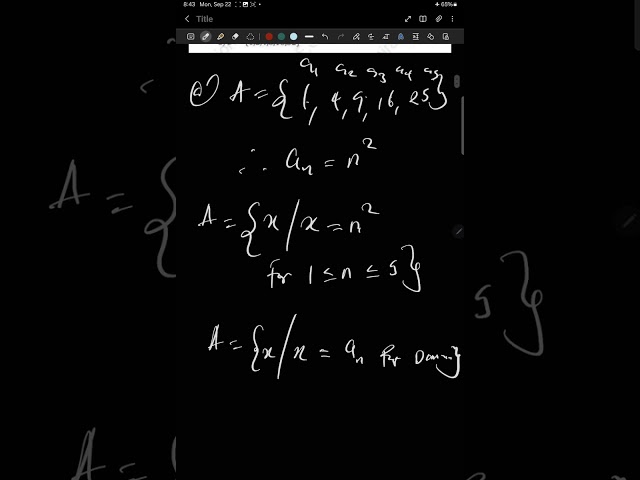 8:43 Mon, Sep 22
65%
Title
a₁ a₂ a₃ a₄ a₅
@ A = {1, 4, 9, 16, 25}
∴ aₙ = n²
A = {x / x = n²
for 1 ≤ n ≤ 5}
A = {x / x = aₙ for